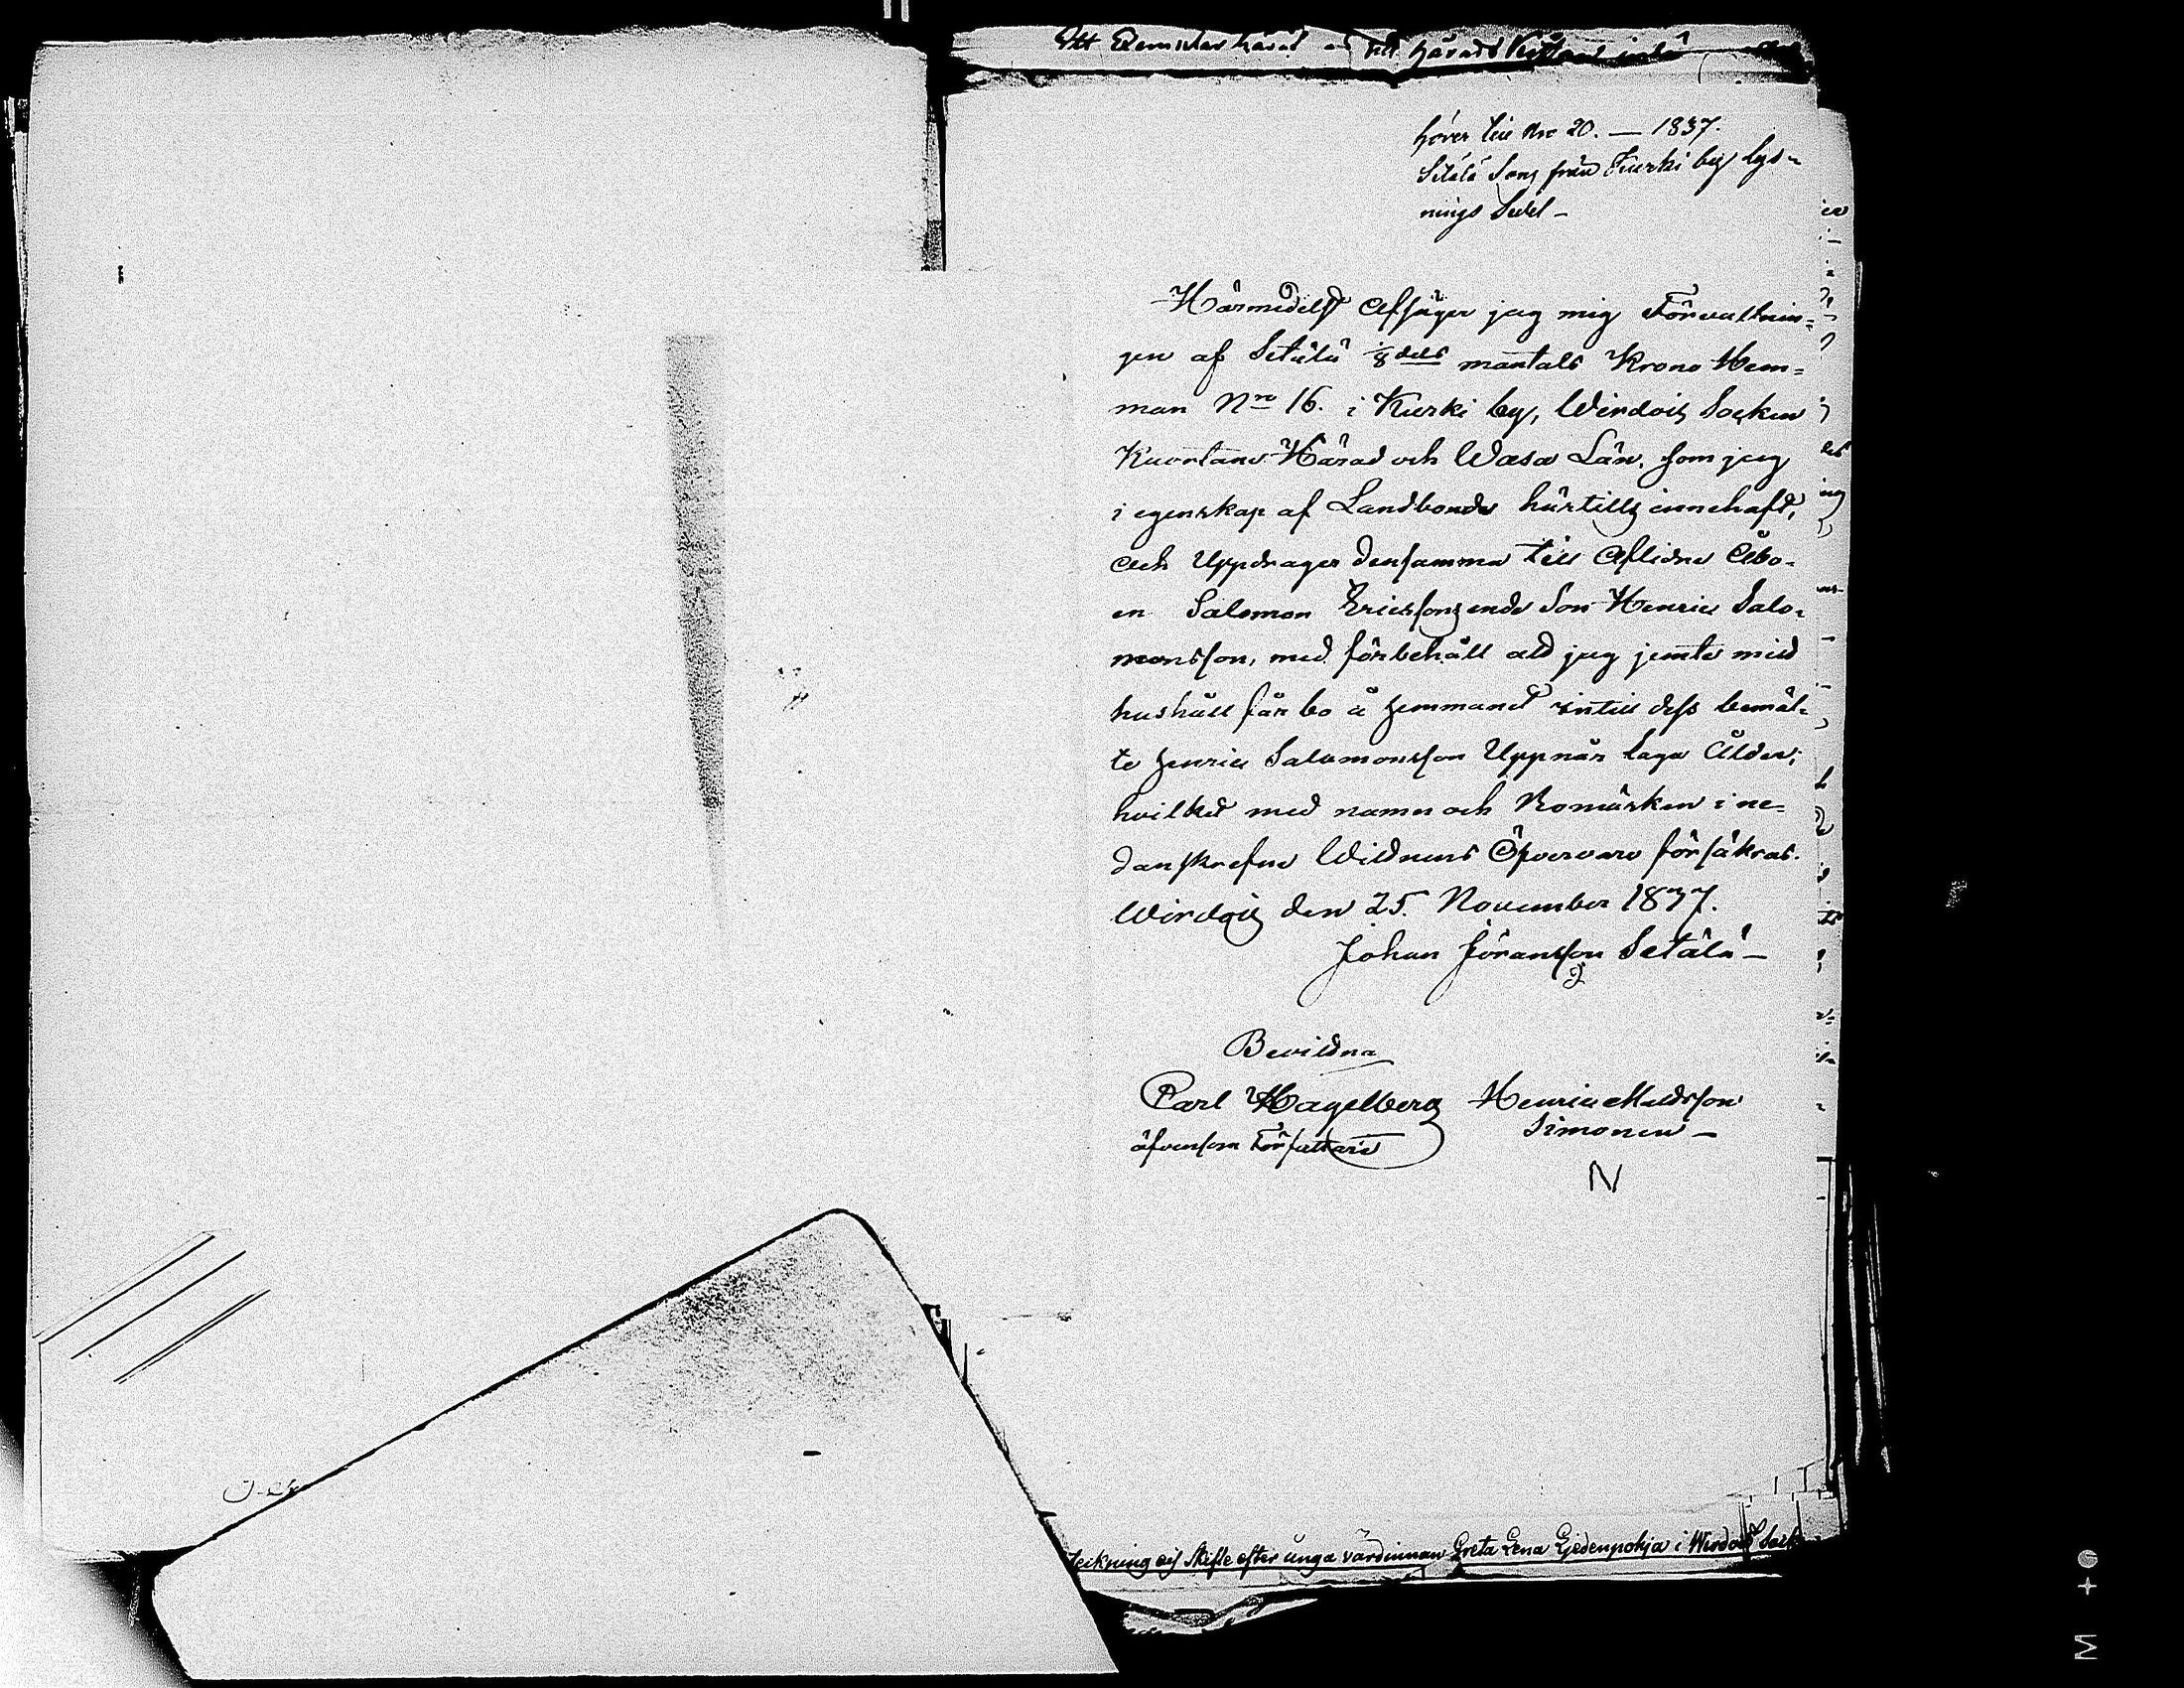 hörer till Nro 20. — 1837.
Setälä Son från Kurki by lys-
nings Sedel —
Härmedelst Afsäger jag mig Förvaltnin=
gen af Setälä 1/8 dels mantals Krono Hem=
man Nro 16. i Kurki by, Wirdois Socken
Kuortane Härad och Wasa Län, som jag
i egenskap af Landbonde härtills innehaft,
och Uppdrager densamma till Aflidne Åbo-
en Salomon Ericssons ende Son Henric Salo-
monsson, med förbehåll att jag jemte mitt
hushåll får bo å hemmanet intill dess bemäl-
te Henric Salomonsson Uppnår laga Ålder;
hvilket med namn och Bomärken i ne=
danskrefne Wittnens Öfvervaro försäkras.
Wirdois den 25. November 1837.
Johan Jöransson Setälä —
Bevittna
Carl Hagelberg Henric Mattsson
äfvensom Författare Simonen —
N
teckning och Skifte efter unga värdinnan Greta Lena Ejedenpohja i Wirdois Sock